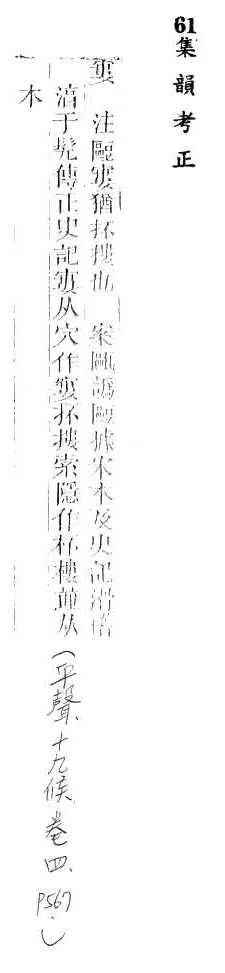 61
集韻考正
窶　注甌窶猶抔摟也　案甌譌歐據宋本及史記滑稽
滑于髡傳正史記窶从穴作窶抔摟索隱作杯樓並从
木
(平聲、十九侯、卷四、P567.)